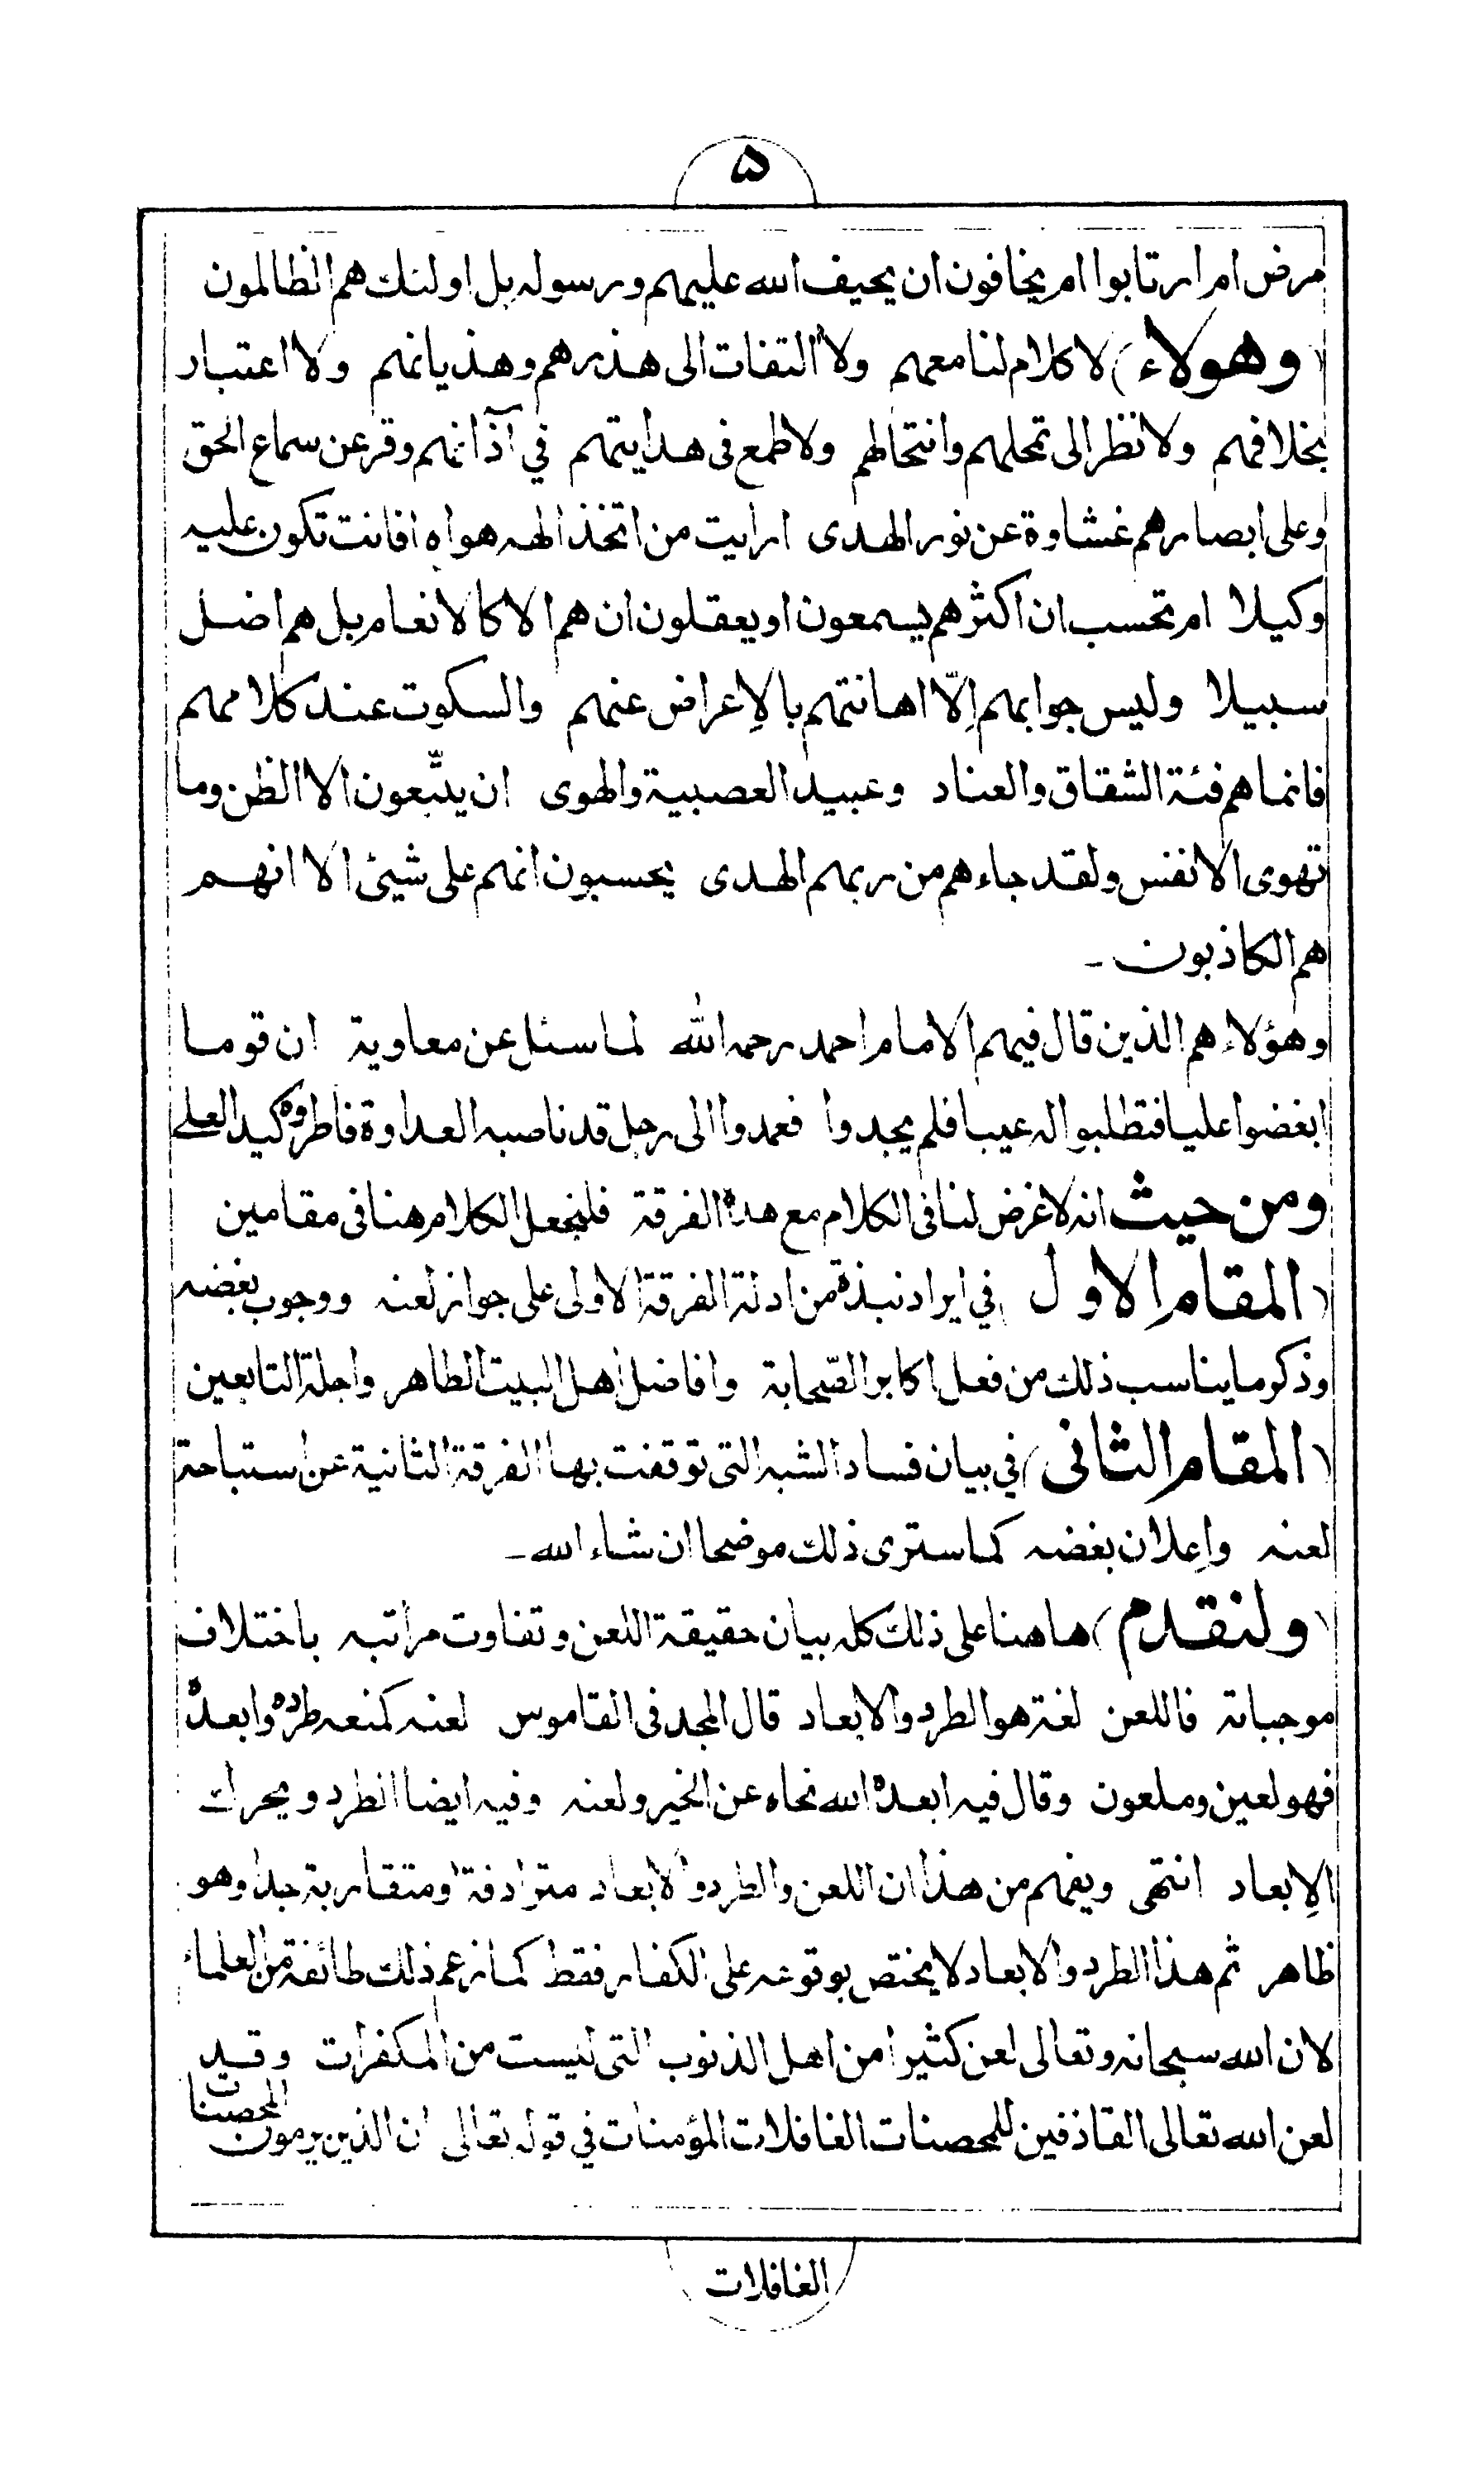 ۵
مرض ام ارتابوا ام يخافون ان يحيف الله عليهم ورسوله بل اولئك هم الظالمون
(وهولاء) لا كلام لنا معهم ولا التفات الى هذرهم وهذيانهم ولا اعتبار
بخلافهم ولا نظر الى تحلهم وانتحالهم ولا طمع فى هدايتهم في آذانهم وقر عن سماع الحق
وعلى ابصارهم غشاوة عن نور الهدى ارايت من اتخذ الهه هواه افانت تكون عليه
وكيلا ام تحسب ان اكثرهم يسمعون او يعقلون ان هم الا كالانعام بل هم اضل
سبيلا وليس جوابهم اِلّا اهانتهم بالاِعراض عنهم والسكوت عند كلامهم
فانما هم فئة الشقاق والعناد وعبيد العصبية والهوى ان يتّبعون الا الظن وما
تهوى الانفس ولقد جاءهم من ربهم الهدى يحسبون انهم على شيئ الا انهم
هم الكاذبون -
وهؤلاء هم الذين قال فيهم الامام احمد رحمه الله لما سئل عن معاوية ان قوما
ابغضوا عليا فتطلبوا له عيبا فلم يجدوا فعمدوا الى رجل قد ناصبه العداوة فاطروه كيدا لعلي
ومن حيث انه لا غرض لنا فى الكلام مع هذه الفرقة فلنجعل الكلام هنا فى مقامين
(المقام الاول) في ايراد نبذة من ادلة الفرقة الاولى على جواز لعنه ووجوب بغضه
وذكر ما يناسب ذلك من فعل اكابر الصّحابة وافاضل اهل البيت الطاهر واجلة التابعين
(المقام الثانى) في بيان فساد الشبه التى توقفت بها الفرقة الثانية عن استباحة
لعنه واِعلان بغضه كما سترى ذلك موضحا ان شاء الله -
(ولنقدم) هاهنا على ذلك كله بيان حقيقة اللعن وتفاوت مراتبه باختلاف
موجباته فاللعن لغة هو الطرد والابعاد قال المجد فى القاموس لعنه كمنعه طرده وابعده
فهو لعين وملعون وقال فيه ابعده الله نحاه عن الخير ولعنه وفيه ايضا الطرد ويحرك
الاِبعاد انتهى ويفهم من هذا ان اللعن والطرد والابعاد مترادفة او متقاربة جدا وهو
ظاهر ثم هذا الطرد والابعاد لا يختص بوقوعه على الكفار فقط كما زعم ذلك طائفة من العلماء
لان الله سبحانه وتعالى لعن كثيرا من اهل الذنوب التى ليست من المكفرات وقد
لعن الله تعالى القاذفين للمحصنات الغافلات المؤمنات في قوله تعالى ان الذين يرمون المحصنات
الغافلات